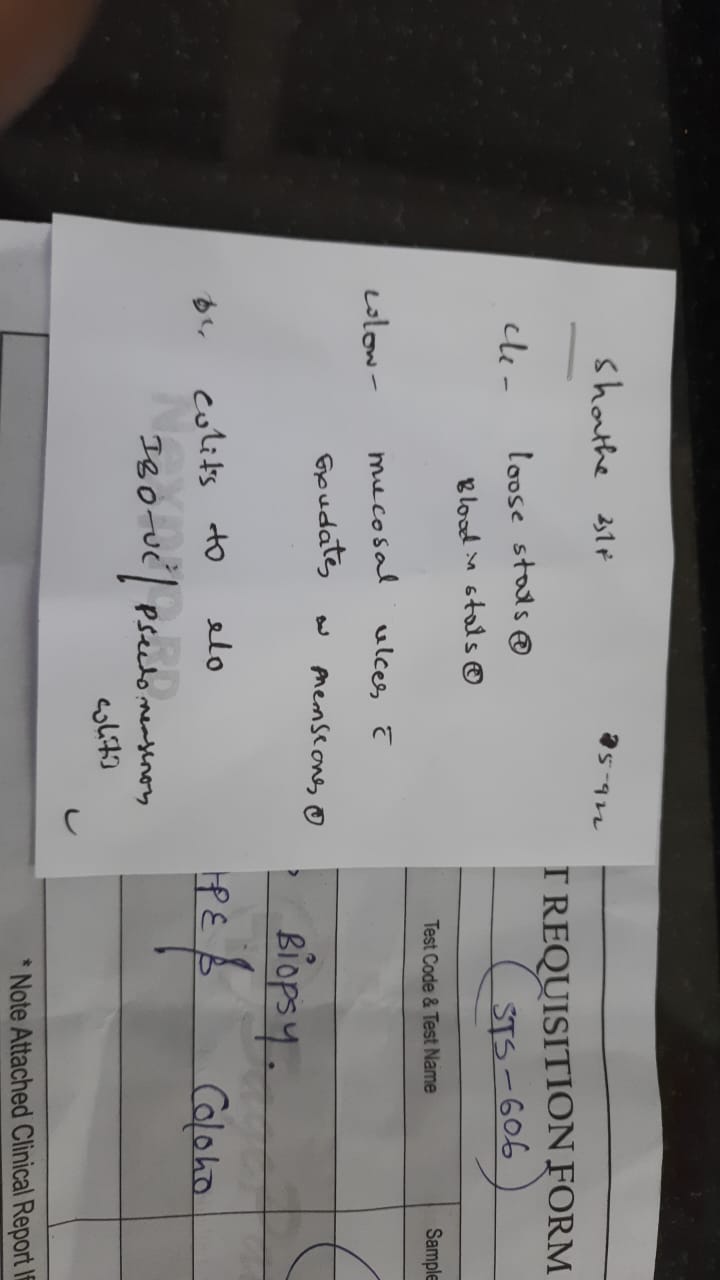 Shanthe 25-9-22
c/c - loose stools ⊕
Blood in stools ⊕
colon - mucosal ulcers c̄
Exudates membranes ⊕
colitis to
IBD-UC / Pseudomembranous
colitis
T REQUISITION FORM
STS-606
Test Code & Test Name Sample
Biopsy.
HPE Colono
* Note Attached Clinical Report If